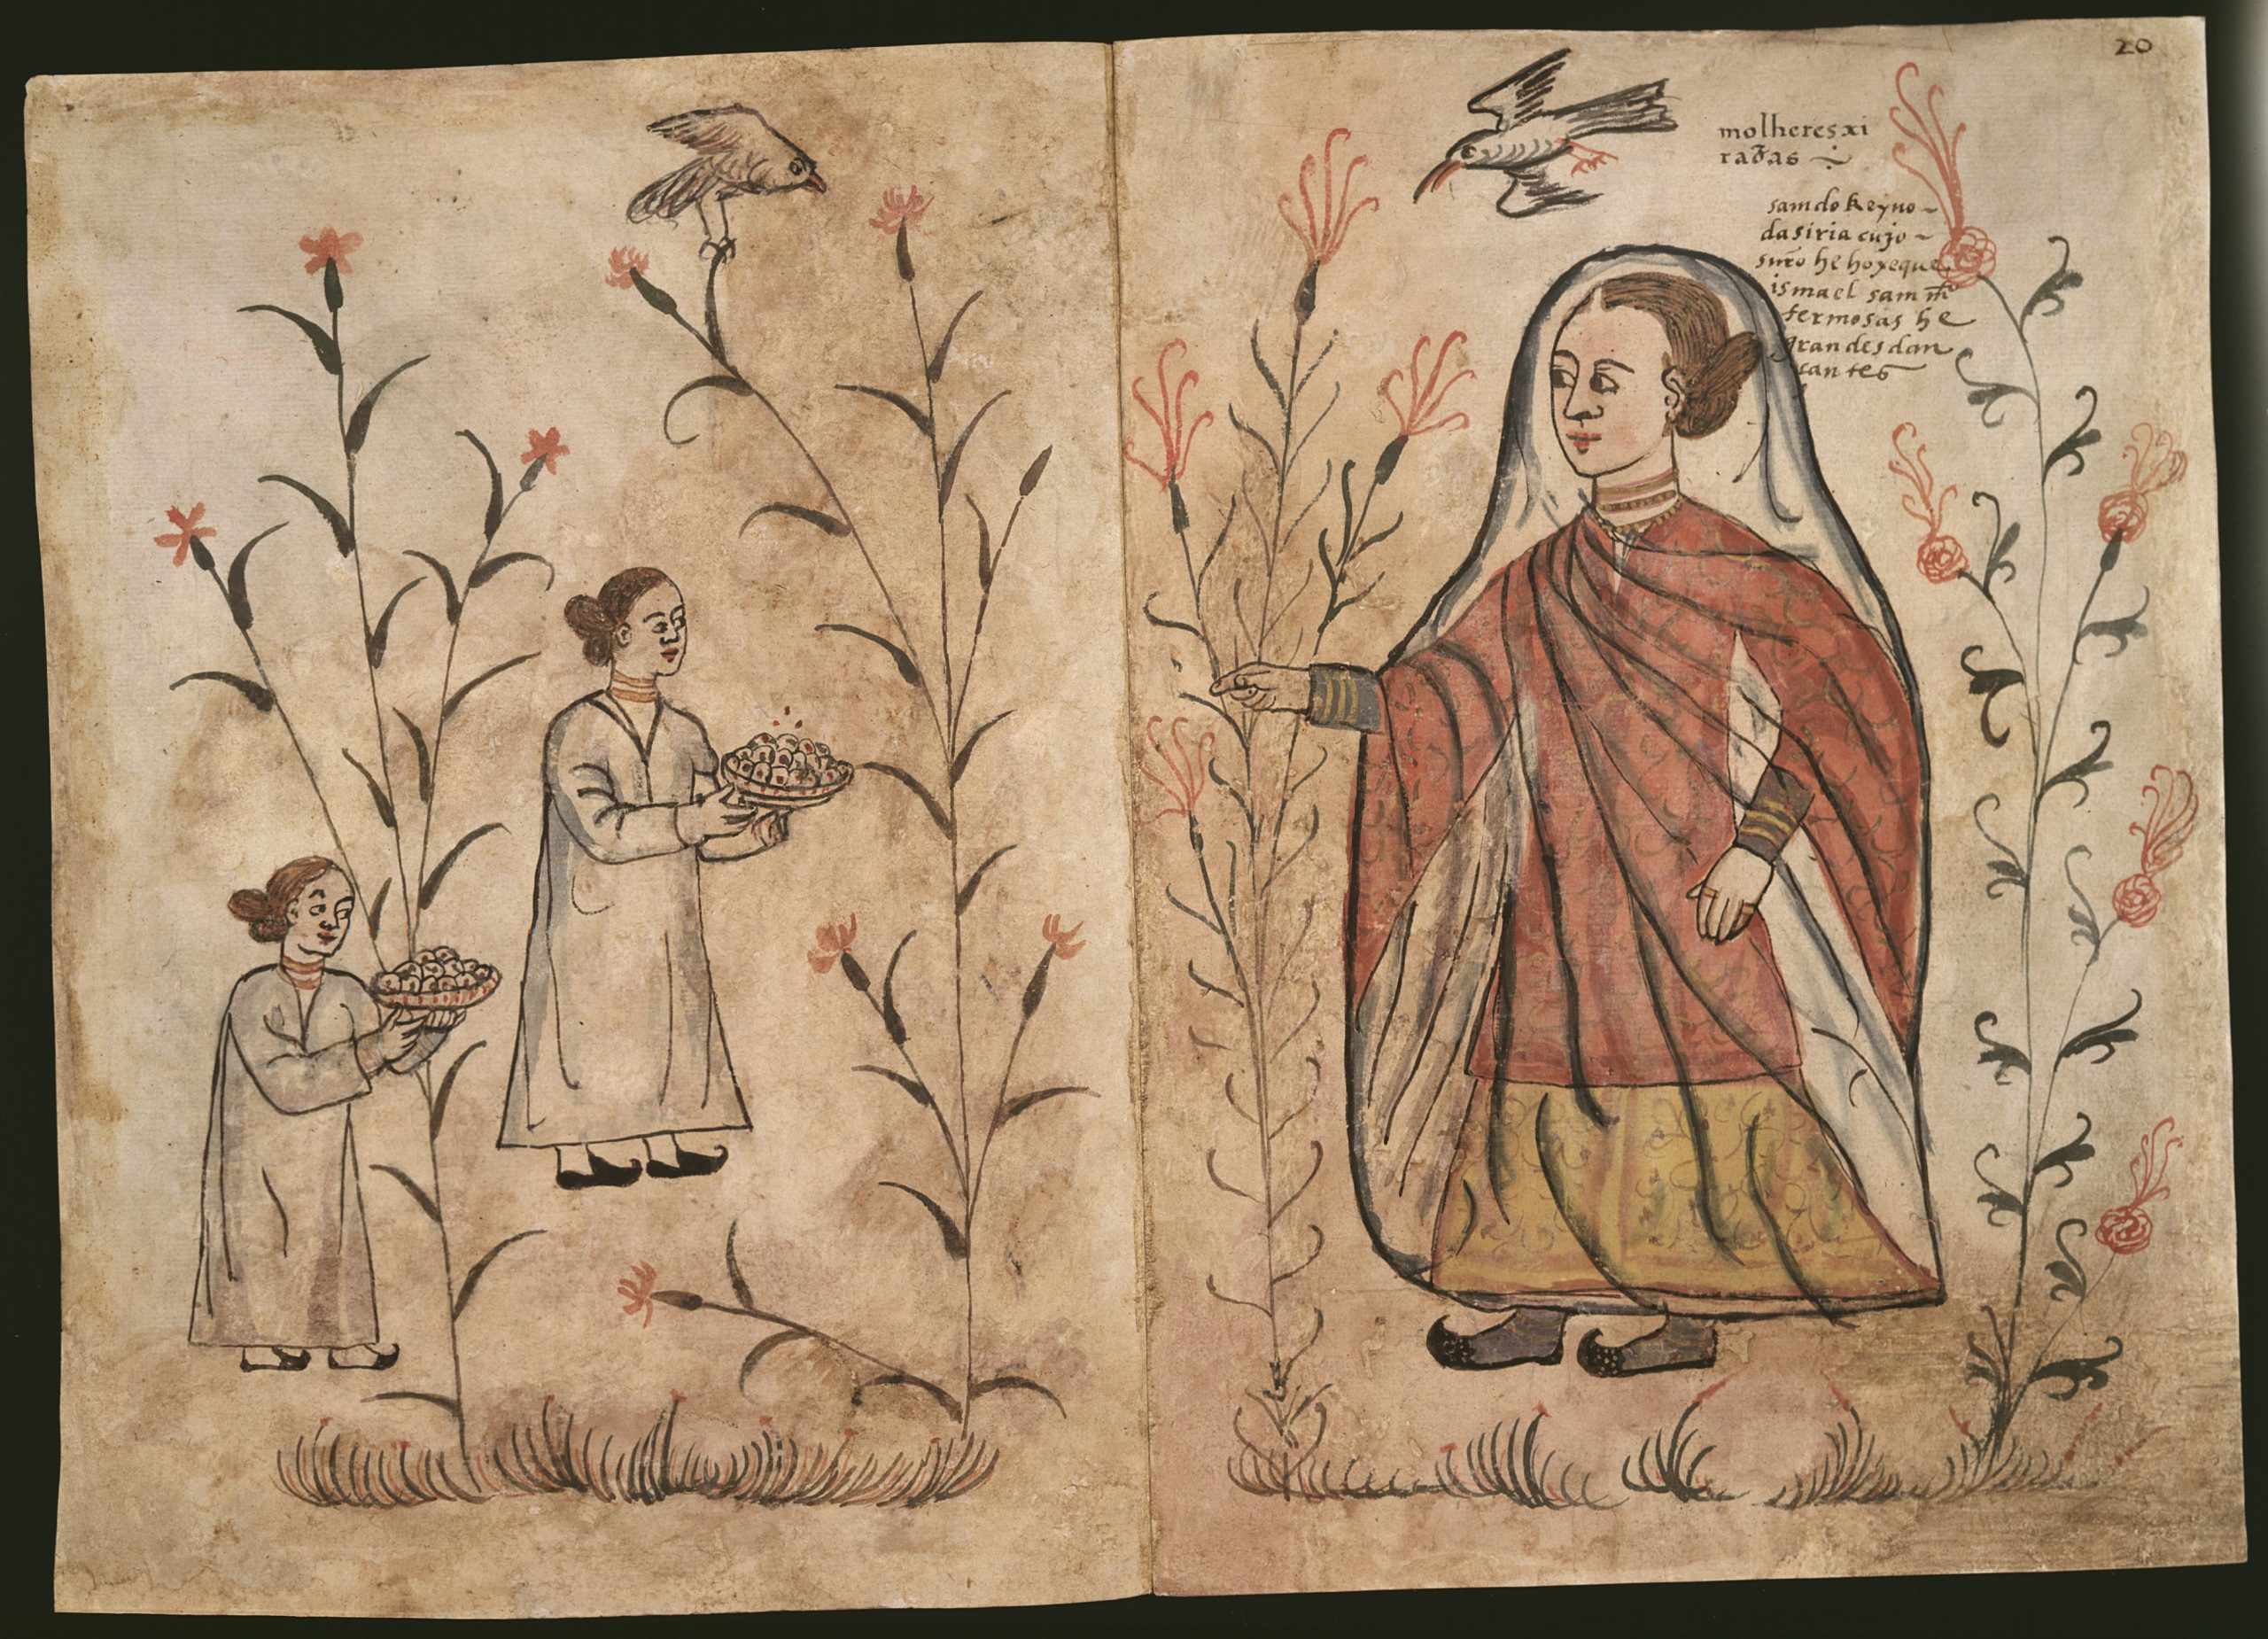 20
molheres xi
radas ~
sam do Reyno ~
da siria cujo ~
he ho xeque
ismael sam m̃
fermosas he
grandes dan
cantes